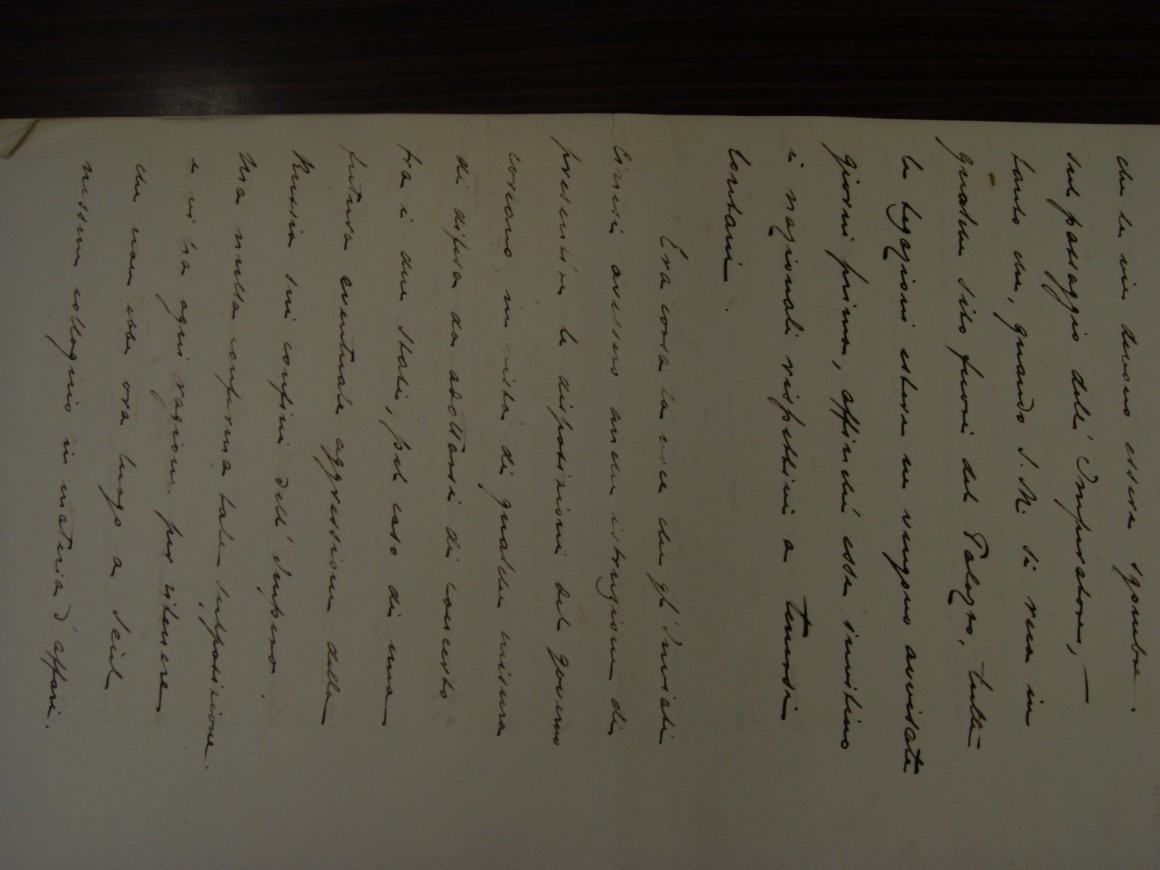 che le vie devono essere sgombre
sul passaggio dell'Imperatore, —
tanto che, quando S. M. si reca in
qualche sito fuori del Palazzo, tutte
le legazioni estere ne vengono avvisate
giorni prima, affinché esse invitino
i nazionali rispettivi a tenersi
lontani.
Era corsa la voce che gl'Inviati
Cinesi avessero anche istruzione di
presentire le disposizioni del governo
coreano, in vista di qualche misura
di difesa da adottarsi di concerto
fra i due Stati, pel caso di una
futura eventuale aggressione della
Russia sui confini dell'Impero.
Ma nulla conferma tale supposizione.
e vi ha ogni ragione per ritenere
che non ebbe ora luogo a Seul
nessun colloquio in materia d'affari.